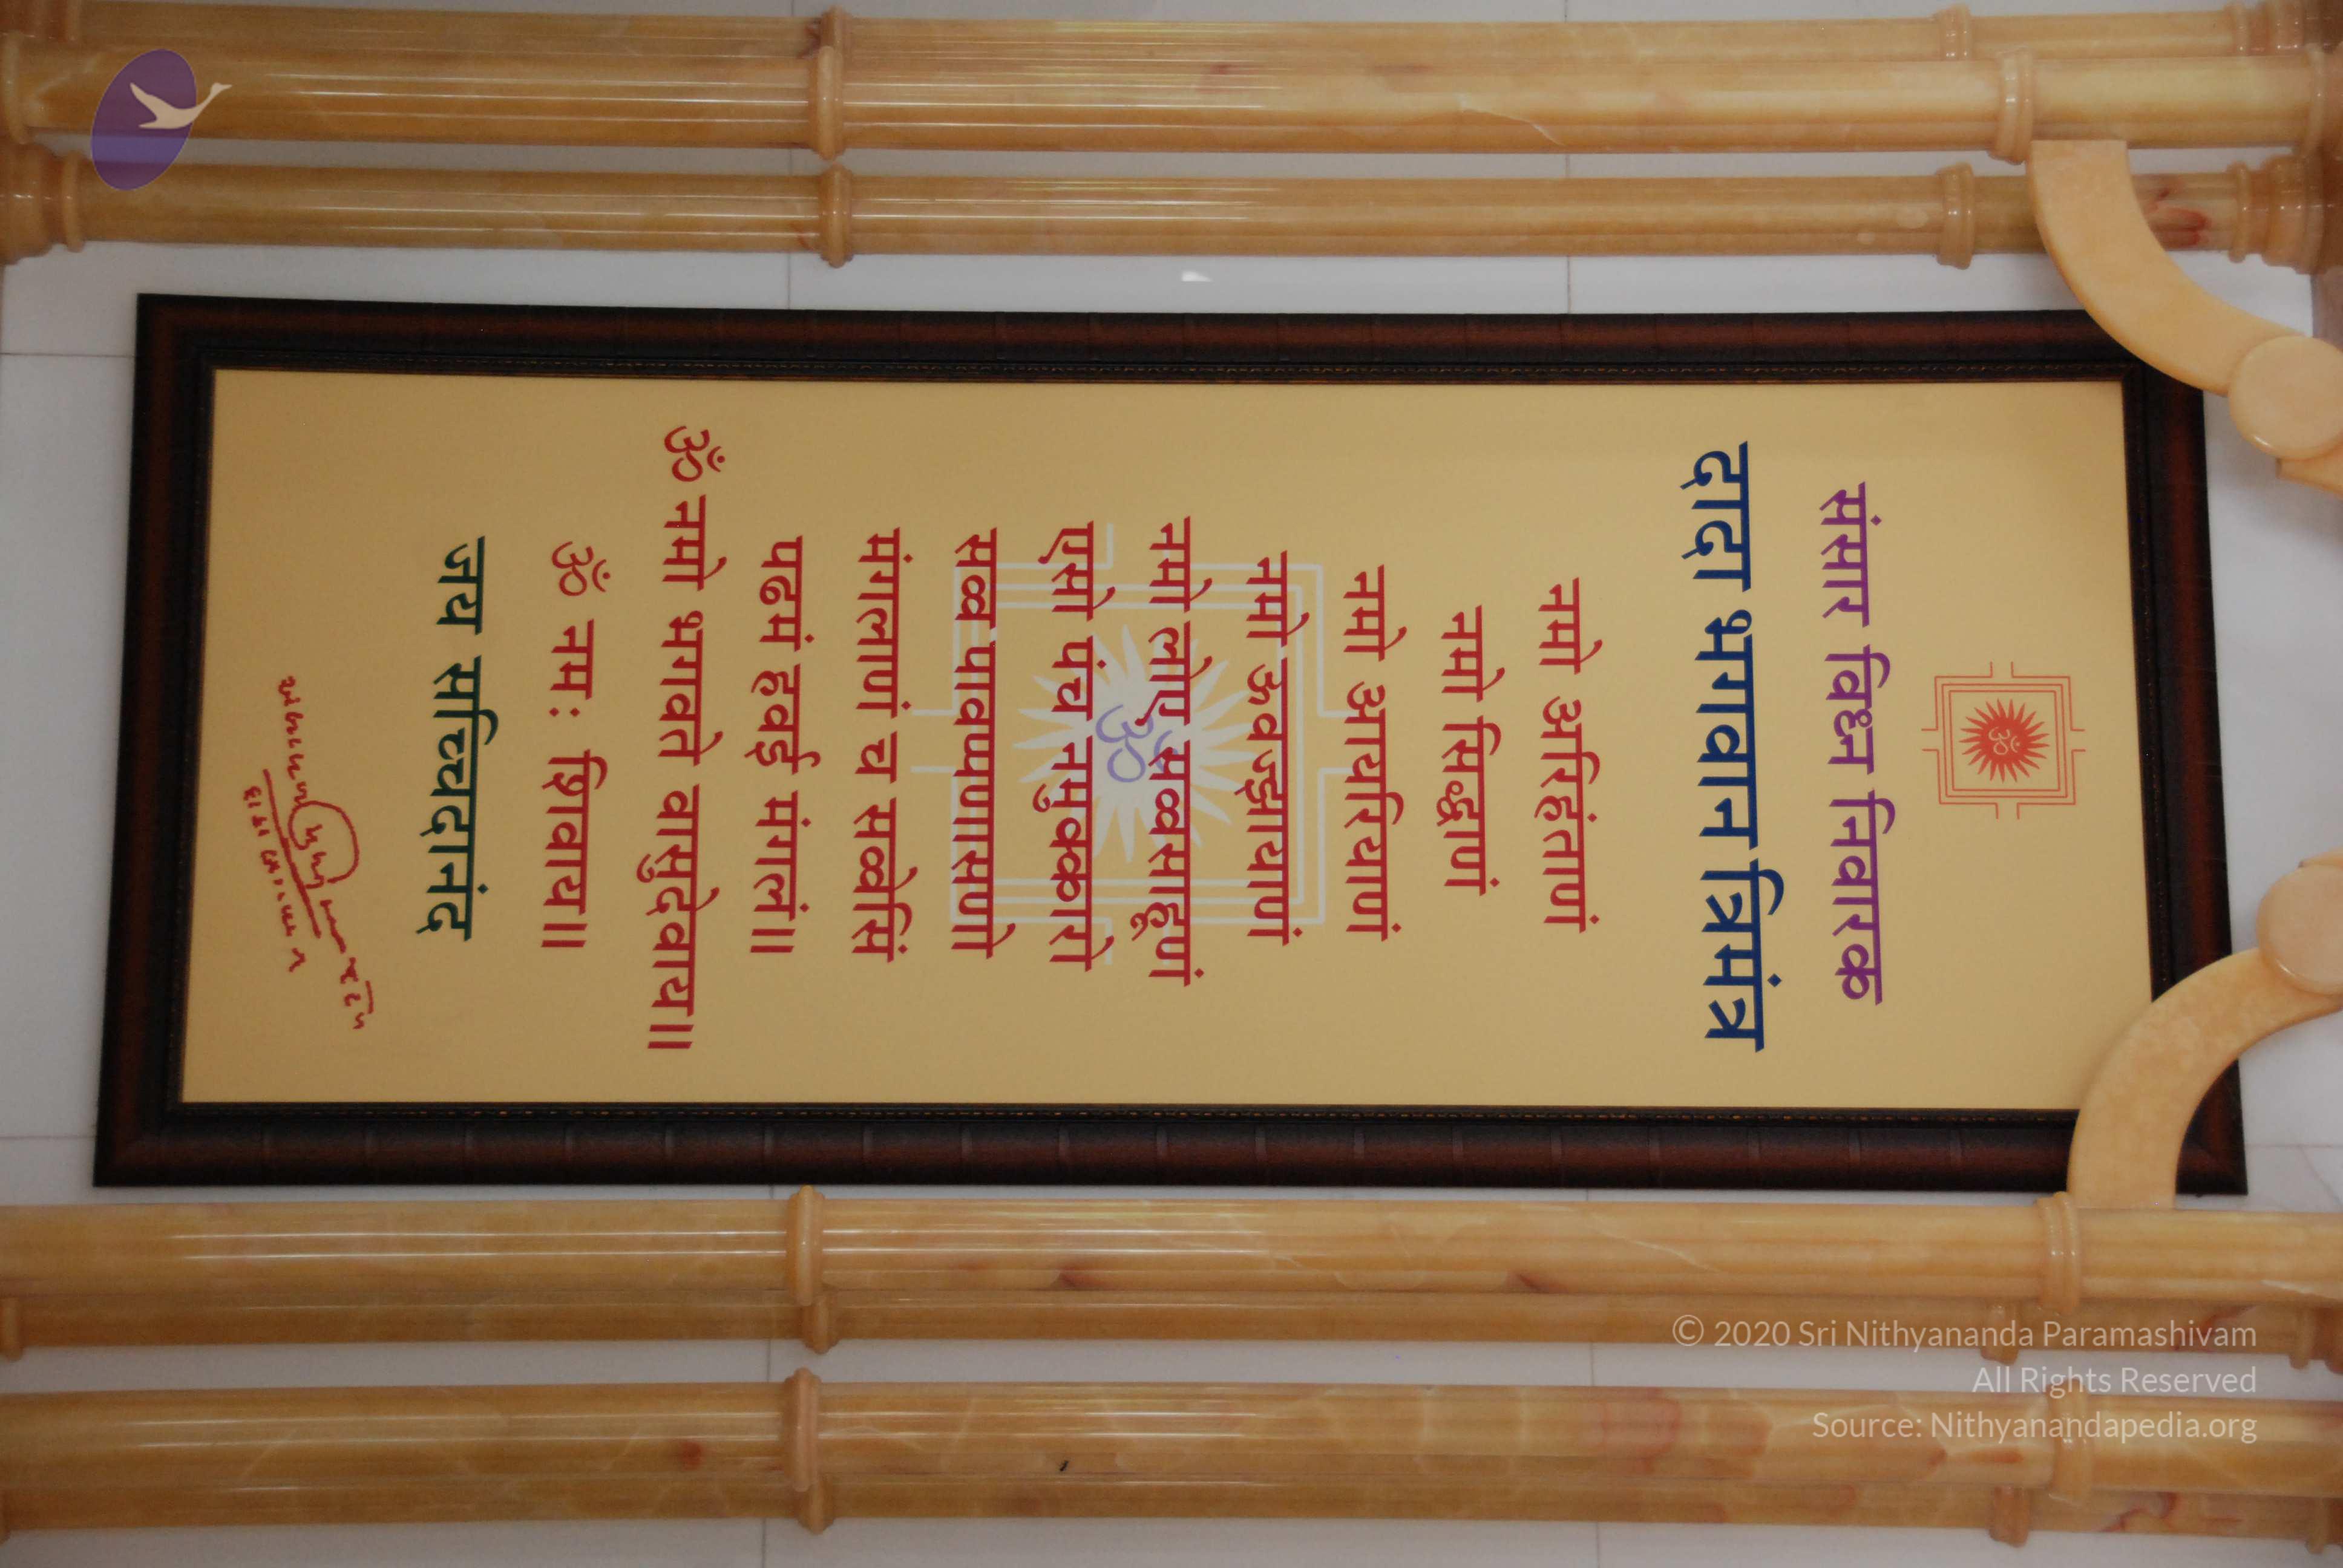 ॐ
संसार विघ्न निवारक
दादा भगवान त्रिमंत्र
नमो अरिहंताणं
नमो सिद्धाणं
नमो आयरियाणं
नमो ऊवज्झायाणं
नमो लोए सव्वसाहूणं
एसो पंच नमुक्कारो
सव्व पावप्पणासणो
मंगलाणं च सव्वेसिं
पढमं हवई मंगलं॥
ॐ नमो भगवते वासुदेवाय॥
ॐ नमः शिवाय॥
जय सच्चिदानंद
ॐ
© 2020 Sri Nithyananda Paramashivam
All Rights Reserved
Source: Nithyanandapedia.org